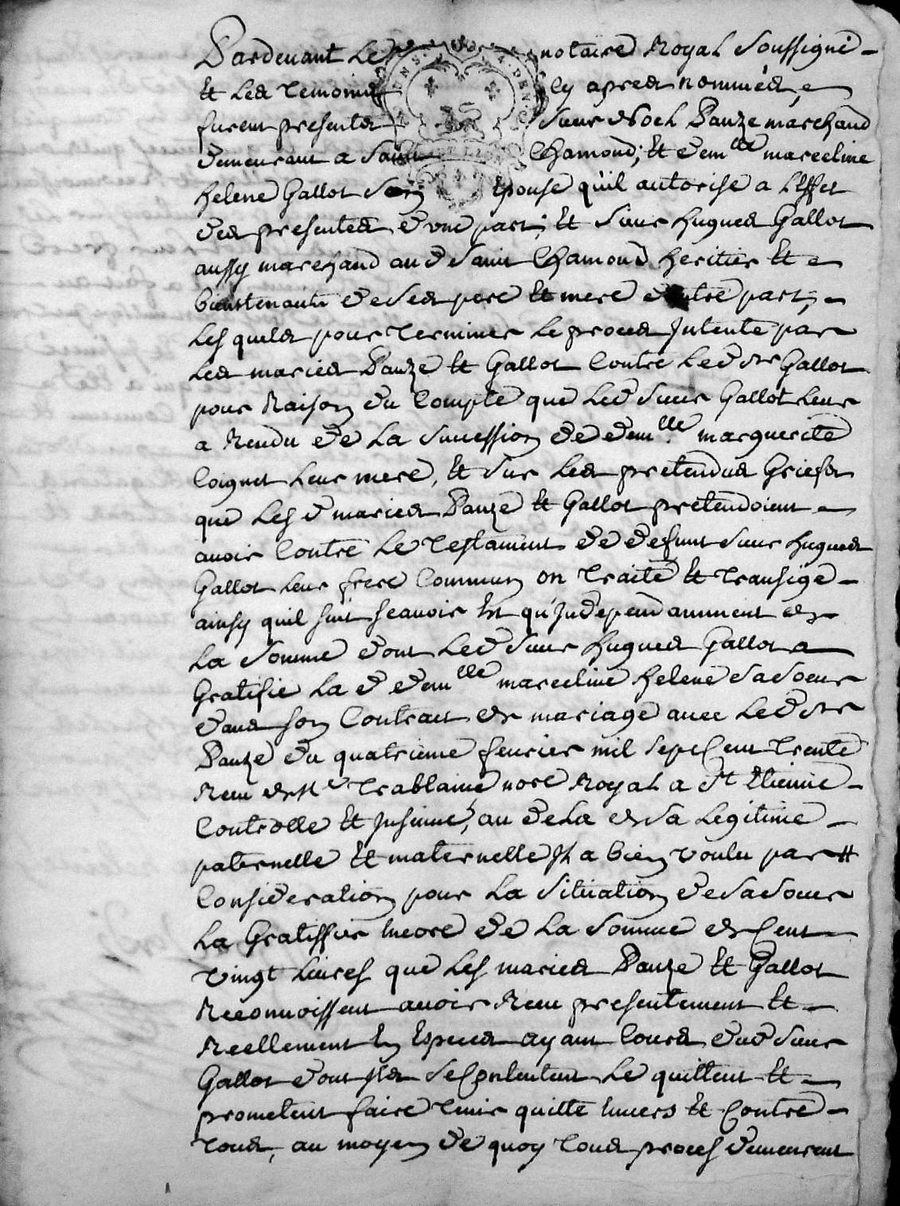 Pardevant Le notaire Royal Soussigné
Et Les Temoins Cy apres nommés
furent presents Sieur Noel Pauze marchand
demeurant a Saint Chamond, Et dem.lle marceline
helene Gallot Son Epouse qu'il autorise a L'effet
des presentes d'une part, Et Sieur hugues Gallot
aussy marchand aud Saint Chamond heritier Et
bientenant de Ses pere Et mere d'autre part,
Les quels pour Terminer Le proces Intenté par
Les mariés Pauze Et Gallot Contre Led Sr Gallot
pour Raison du Compte que Led Sieur Gallot Leur
a Rendu de La Succession de dem.lle marguerite
Coignet Leur mere, Et Sur Les pretendus Griefs
que Les d mariés Pauze Et Gallot pretendoient
avoir Contre Le Testament de deffunt Sieur hugues
Gallot Leur frere Commun on Traité Et Transigé
ainsy quil Suit Scavoir Est qu'Independamment de
La Somme dont Led Sieur hugues Gallot a
Gratifié La d dem.lle marceline helene Sa Soeur
dans Son Contrait de mariage avec Led Sr
Pauze du quatrieme fevrier mil Sept Cent Trente
Receu de Me Trablaine nore Royal a St Etienne
Controllé Et Insinué, au dela de Sa Legitime
paternelle Et maternelle Il a bien voulu par
Consideration pour La Situation de Sa Soeur
La Gratiffier Encore de La Somme de Cent
vingt Livres que Les mariés Pauze Et Gallot
Reconnoissent avoir Receu presentement Et
Reellement En Especes ayant Cours dud Sieur
Gallot dont Ils Se Contentent Le quittent Et
promettent faire Tenir quitte Envers Et Contre
Tous, au moyen de quoy Tous proces demeurent